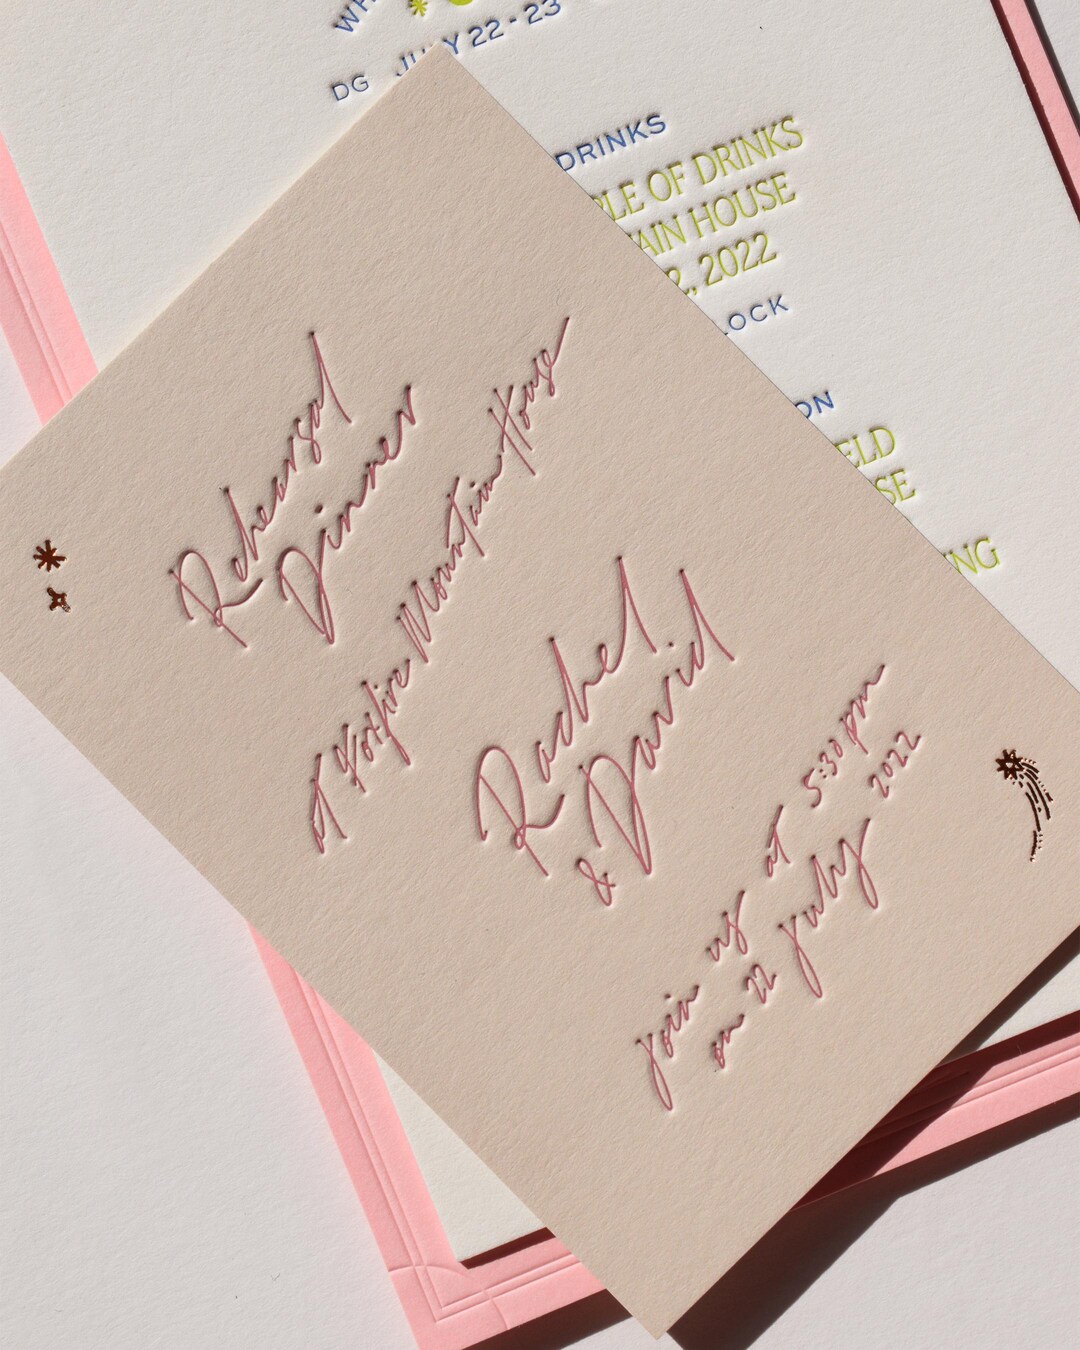 DG JULY 22-23
DRINKS
OF DRINKS
HOUSE
2022
Rehearsal
Dinner
at Foxfire Mountain House
Rachel
& David
Join us at 5:30 pm
on 22 July 2022